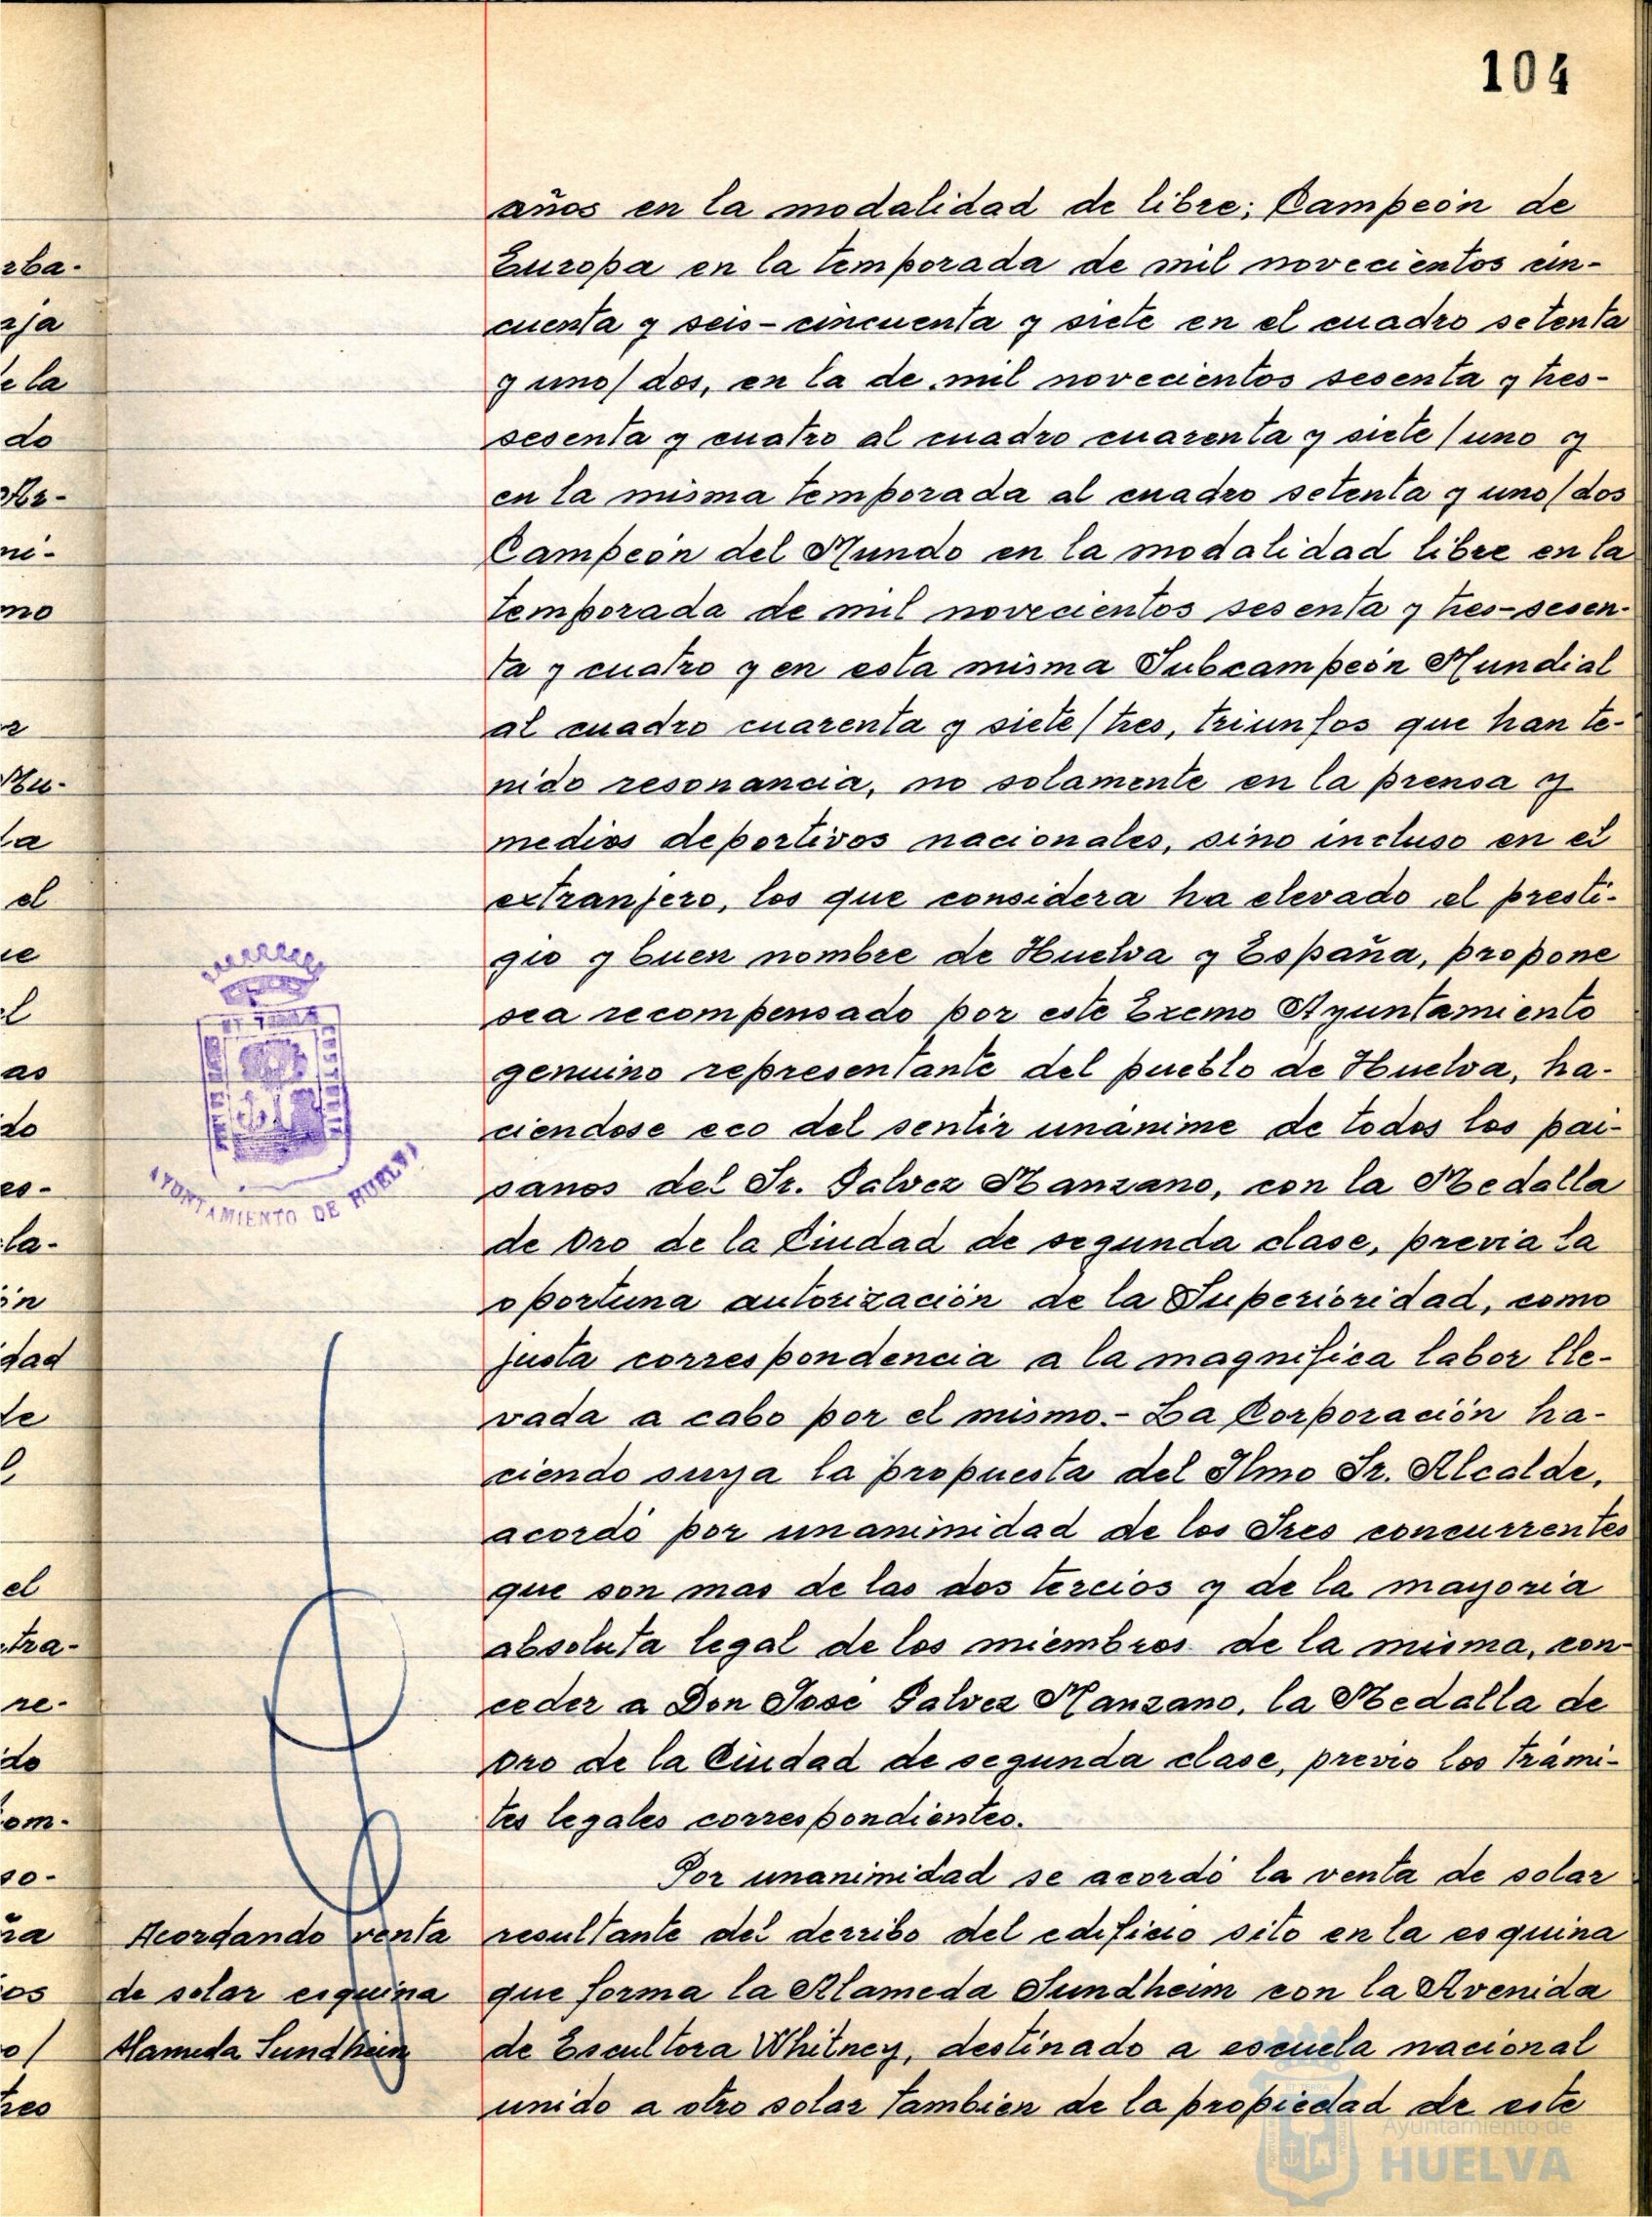 104
años en la modalidad de libre; Campeón de
Europa en la temporada de mil novecientos cin-
cuenta y seis-cincuenta y siete en el cuadro setenta
y uno/dos, en la de mil novecientos sesenta y tres-
sesenta y cuatro al cuadro cuarenta y siete/uno y
en la misma temporada al cuadro setenta y uno/dos
Campeón del Mundo en la modalidad libre en la
temporada de mil novecientos sesenta y tres-sesen-
ta y cuatro y en esta misma Subcampeón Mundial
al cuadro cuarenta y siete/tres, triunfos que han te-
nido resonancia, no solamente en la prensa y
medios deportivos nacionales, sino incluso en el
extranjero, los que considera ha elevado el presti-
gio y buen nombre de Huelva y España, propone
sea recompensado por este Excmo Ayuntamiento
genuino representante del pueblo de Huelva, ha-
ciendose eco del sentir unánime de todos los pai-
sanos del Sr. Galvez Manzano, con la Medalla
de Oro de la Ciudad de segunda clase, previa la
oportuna autorización de la Superioridad, como
justa correspondencia a la magnifica labor lle-
vada a cabo por el mismo.- La Corporación ha-
ciendo suya la propuesta del Ilmo Sr. Alcalde,
acordó por unanimidad de los Sres concurrentes
que son mas de las dos tercios y de la mayoria
absoluta legal de los miembros de la misma, con-
ceder a Don José Galvez Manzano, la Medalla de
Oro de la Ciudad de segunda clase, previo los trámi-
tes legales correspondientes.
Por unanimidad se acordó la venta de solar
resultante del derribo del edificio sito en la esquina
que forma la Alameda Sundheim con la Avenida
de Escultora Whitney, destinado a escuela nacional
unido a otro solar tambien de la propiedad de este
Acordando venta
de solar esquina
Alameda Sundheim
AYUNTAMIENTO DE HUELVA
Ayuntamiento de
HUELVA